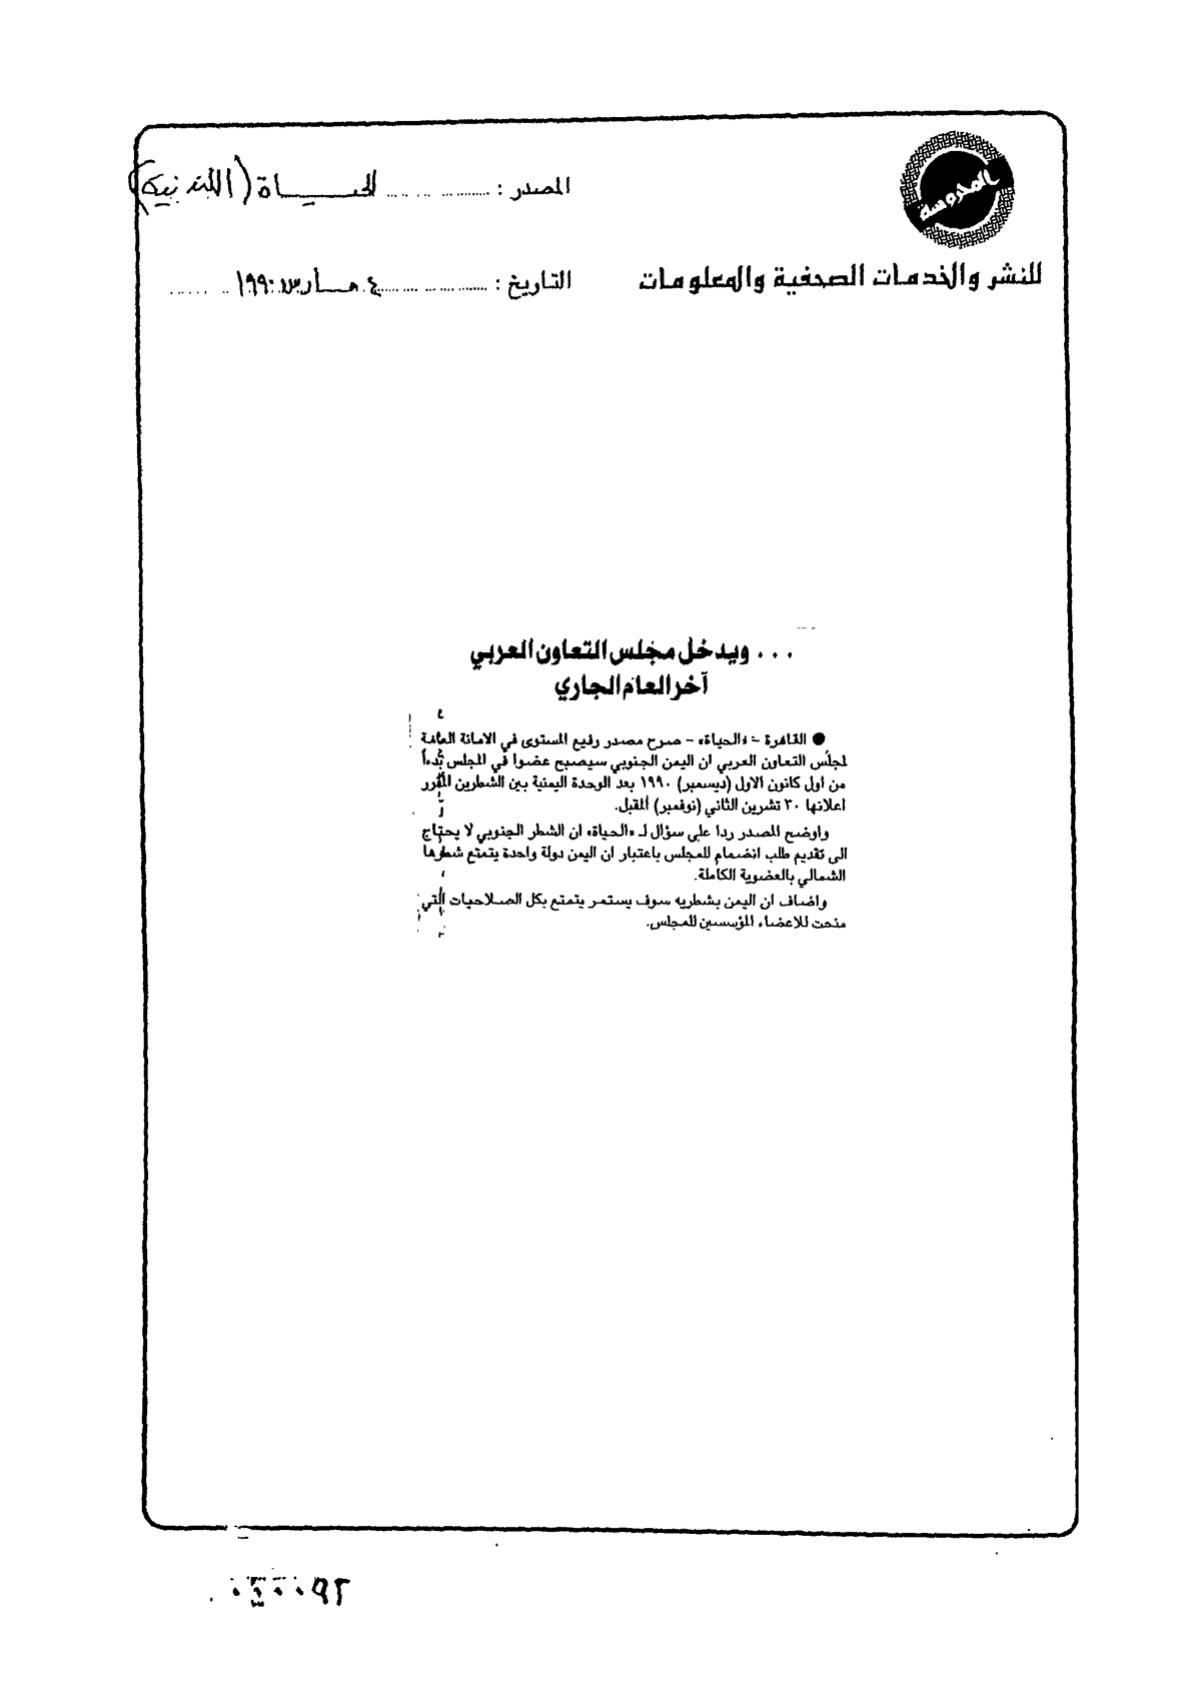 المحروسة
للنشر والخدمات الصحفية والمعلومات
المصدر : الحياة (اللندنية)
التاريخ : ٤ مارس ١٩٩٠
... ويدخل مجلس التعاون العربي
آخر العام الجاري
● القاهرة - «الحياة» - صرح مصدر رفيع المستوى في الامانة العامة
لمجلس التعاون العربي ان اليمن الجنوبي سيصبح عضوا في المجلس بدءاً
من اول كانون الاول (ديسمبر) ١٩٩٠ بعد الوحدة اليمنية بين الشطرين المقرر
اعلانها ٣٠ تشرين الثاني (نوفمبر) المقبل.
واوضح المصدر ردا على سؤال لـ «الحياة» ان الشطر الجنوبي لا يحتاج
الى تقديم طلب انضمام للمجلس باعتبار ان اليمن دولة واحدة يتمتع شطرها
الشمالي بالعضوية الكاملة.
واضاف ان اليمن بشطريه سوف يستمر يتمتع بكل الصلاحيات التي
منحت للاعضاء المؤسسين للمجلس.